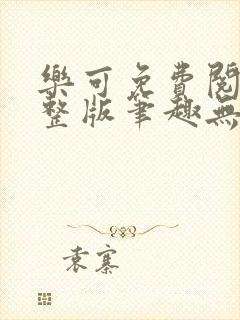 樂可免費閱
整版筆趣無
袁寨